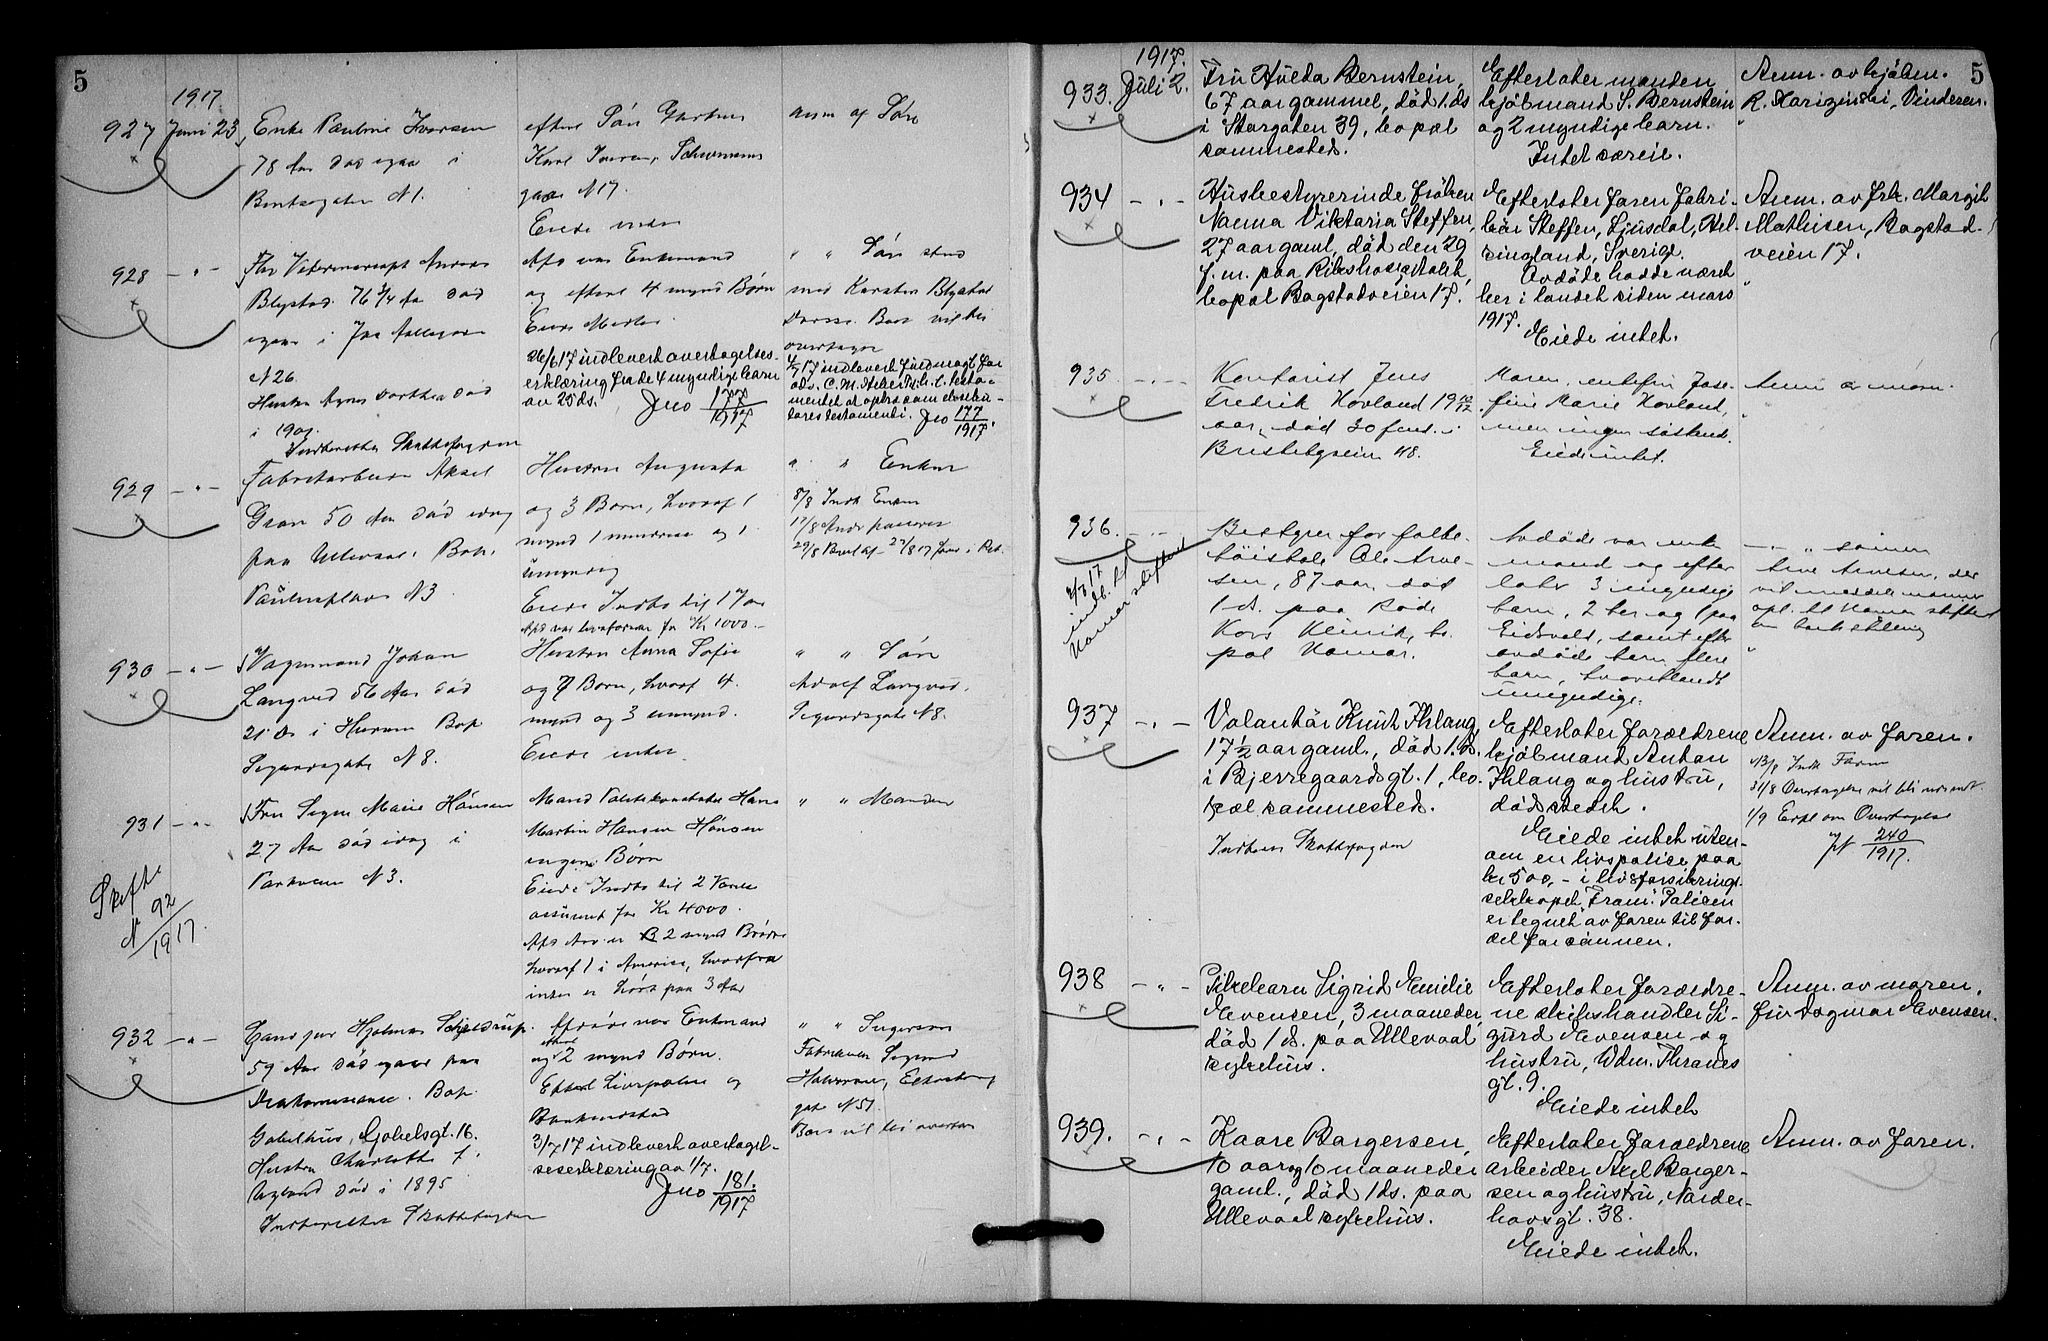 5
1917
927 Juni 23 Enke Pauline Iversen
78 Aar død igaar i
Bentsegaten N 1.
efterl Søn
Karl Iversen,
gade N 17.
Eiede intet
anm af Søn
928 - " -
Blystad 76 3/4 Aar død
igaar i
N 26.
Hustru Agnes Dorthea død
i 1909.
Underrettet Skattefogden
Afd var Enkemand
og efterl 4 mynd Børn
26/6 17 indlevert overtagelses-
erklæring fra de 4 myndige barn
av 25 ds. Jno 177/1917
" " Søn stud
med Karsten Blystad
Boet vil bli
overtaget
17 indlevert fuldmagt for
Jno 177/1917.
929 - " - Fabrikarbeider Aksel
Gran 50 Aar død idag
paa Ullevaal. Bop.
Paulusplads N 3.
Hustru Augusta
og 3 Børn, hvoraf 1
mynd 1 mindreaa og 1
umyndig
Eiede Indbo til 1 Vær
for Kr 1000.-
" " Enken
8/8 Indk Enken
930 - " - Vognmand Johan
Langved 56 Aar død
21 ds i Hurum Bop
Sigurdsgate N 8.
Hustru Anna Sofie
og 7 Børn, hvoraf 4
mynd og 3 umynd.
Eiede intet
" " Søn
Adolf Langved.
Sigurdsgate N 8.
931 - " - Fru Signe Marie Hansen
27 Aar død idag i
Parkveien N 3.
Skifte
N 92/1917.
Mand Politikonstabel Hans
Martin Hansen
ingen Børn
Eiede Indbo til 2 Værelser
assureret for Kr 4000.
2 mynd Brødre
hvoraf 1 i Amerika, hvorfra
intet er hørt paa 3 Aar
" " Manden
932 - " - Hjalmar Schjeldrup.
59 Aar død igaar paa
Diakonissehuset. Bop.
Gabelshus, Gabelsgt. 16.
Hustru Charlotte f.
Nyland død i 1895
Underrettet Skattefogden
Afdøde var Enkemand
og efterl 2 mynd Børn.
Efterl Livspolise og
Bankindskud
3/7 17 indlevert overtagel-
seserklæring av 1/7.
Jno 181./1917
" " Svigersøn
Fabrikeier Sigurd
Halvorsen, Eckersberg
gate N 51.
Boet vil bli overtat
5
1917.
933. Juli 2. Fru Hulda Bernstein,
67 aar gammel, død 1. ds
i Storgaten 39, bopæl
sammesteds.
Efterlater manden
kjøbmand S. Bernstein
og 2 myndige barn.
Intet særeie.
Anm. av kjøbm.
R. Karizinski, Vinderen.
934 - " - Husbestyrerinde frøken
Nanna Viktoria Steffen,
27 aar gaml, død den 29
f.m. paa Rikshospitalet,
bopæl Bogstadveien 17.
Efterlater faren fabri-
kør Steffen, Ljusdal, Hel-
singland, Sverige.
Avdøde hadde været
her i landet siden mars
1917.
Eiede intet.
Anm. av frk. Margit
Mathisen, Bogstad-
veien 17.
935 - " - Kontorist Jens
Fredrik Hovland 19 10/12
aar, død 30 forr. i
48.
Moren, enkefru Jose-
fine Marie Hovland,
men ingen søskend.
Eiede intet.
Anm av moren.
936. - " - Bestyrer for folke-
Ole Arne-
sen, 87 aar, død
1 ds. paa Røde
Kors Klinik, bo-
pæl Hamar.
17
indb. til
Hamar skifteret
Avdøde var enke-
mand og efter-
later 3 myndige
barn, 2 her og 1 paa
Eidsvold, samt efter
avdøde barn flere
barn, hvoriblandt
umyndige.
- " - " sønnen
Arne Arnesen, der
opl. til Hamar skifteret
937 - " - Volontør Knut Ihlang,
17 1/2 aar gaml., død 1. ds.
i Bjerregaardsgt. 1, bo-
pæl sammesteds.
Underr. Skattefogden
Efterlater forældrene
kjøbmand Anton
Ihlang og hustru,
dødsstedet.
Eiede intet uten-
om en livspolice paa
kr 500,- i livsforsikrings-
selskapet "Fram". Policen
er tegnet av faren til for-
del for sønnen.
Anm. av faren.
13/8 Indk Faren
31/8 Overtagelse vil bli utstedt.
1/9 Erkl om Overtagelse
JN 240/1917.
938 - " - Pikebarn Sigrid Emilie
Evensen, 3 maaneder,
død 1 ds. paa Ullevaal
sykehus.
Efterlater forældre-
ne skibshandler Si-
gurd Evensen og
hustru, Wdm. Thranes
gt. 9.
Eiede intet
Anm. av moren,
fru Dagmar Evensen.
939. - " - Kaare Borgersen,
10 aar og 10 maaneder
gaml., død 1 ds. paa
Ullevaal sykehus.
Efterlater forældrene
arbeider Axel Borger-
sen og hustru, Norder-
hovsgt. 38.
Eiede intet.
Anm. av faren.